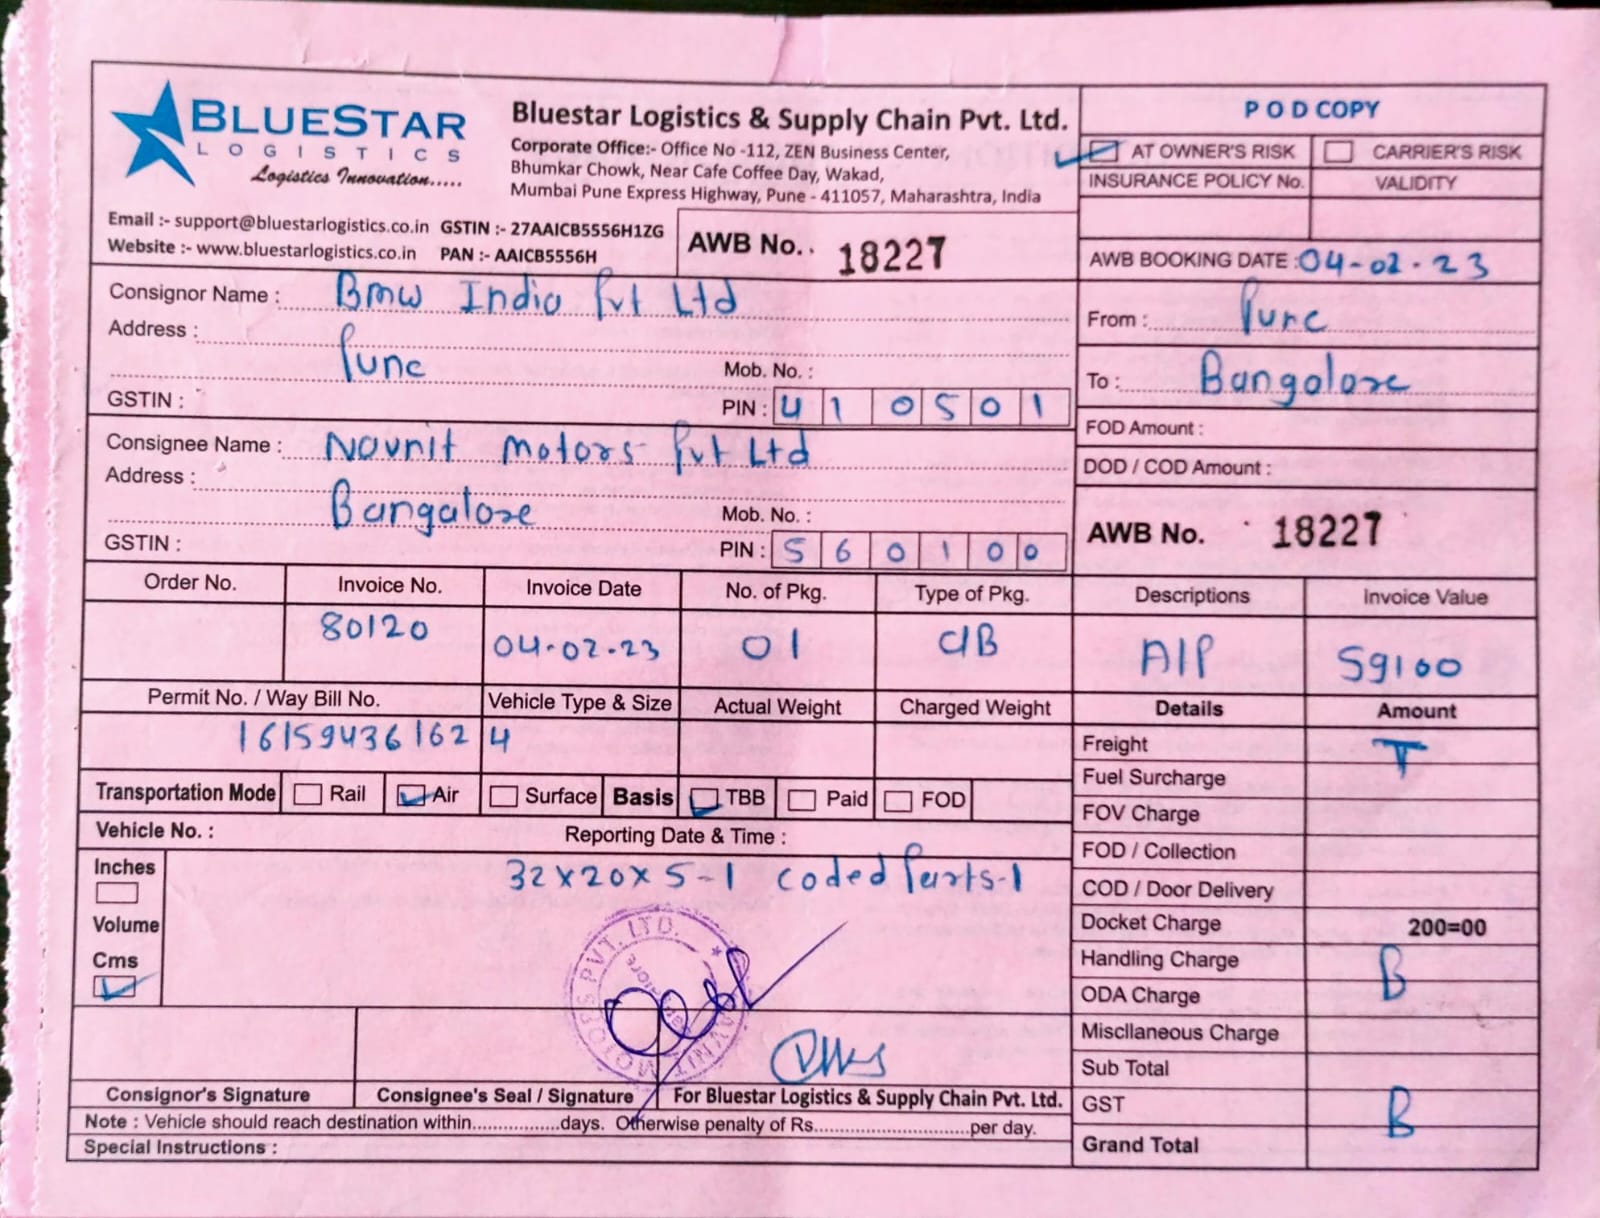 BLUESTAR
LOGISTICS
Logistics Innovation.....
Bluestar Logistics & Supply Chain Pvt. Ltd.
Corporate Office:- Office No -112, ZEN Business Center,
Bhumkar Chowk, Near Cafe Coffee Day, Wakad,
Mumbai Pune Express Highway, Pune - 411057, Maharashtra, India
Email :- support@bluestarlogistics.co.in GSTIN :- 27AAICB5556H1ZG
Website :- www.bluestarlogistics.co.in PAN :- AAICB5556H
AWB No.. 18227
POD COPY
AT OWNER'S RISK CARRIER'S RISK
INSURANCE POLICY No. VALIDITY
AWB BOOKING DATE : 04-02-23
From : Pune
To : Bangalore
FOD Amount :
DOD / COD Amount :
AWB No. 18227
Consignor Name : BMW India Pvt Ltd
Address :
Pune Mob. No. :
GSTIN : PIN : 410501
Consignee Name : Navnit Motors Pvt Ltd
Address :
Bangalore Mob. No. :
GSTIN : PIN : 560100
Order No. Invoice No. Invoice Date No. of Pkg. Type of Pkg. Descriptions Invoice Value
80120 04-02-23 01 C/B A/P 59100
Permit No. / Way Bill No. Vehicle Type & Size Actual Weight Charged Weight
161594361624
Transportation Mode Rail Air Surface Basis TBB Paid FOD
Vehicle No. : Reporting Date & Time :
Inches
Volume
Cms
32x20x5-1 coded Parts-1
Details Amount
Freight T
Fuel Surcharge
FOV Charge
FOD / Collection
COD / Door Delivery
Docket Charge 200=00
Handling Charge B
ODA Charge
Miscllaneous Charge
Sub Total
GST B
Grand Total
MOTORS PVT. LTD.
Consignor's Signature Consignee's Seal / Signature For Bluestar Logistics & Supply Chain Pvt. Ltd.
Note : Vehicle should reach destination within.................days. Otherwise penalty of Rs.............................per day.
Special Instructions :